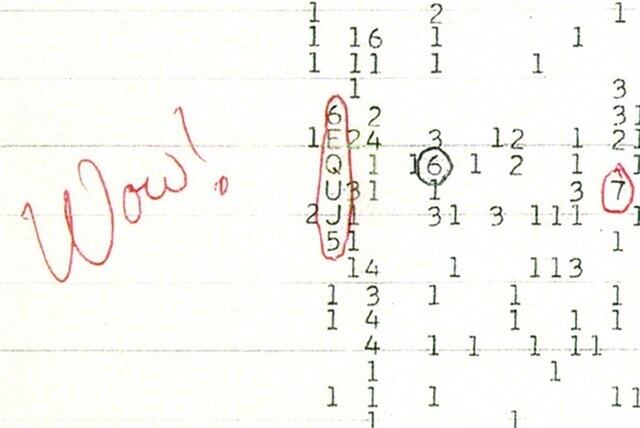 Wow!
1 2 1
1 16 1 1
1 11 1 1
1 3
6 2 31
1 E24 3 12 1 21
Q 1 16 1 2 1 1 1
U31 1 3 7
2J1 31 3 111 1
51 1
14 1 113
1 3 1 1 1
1 4 1 1 1
4 1 1 1 11
1 1
1 1 1 11
1 1